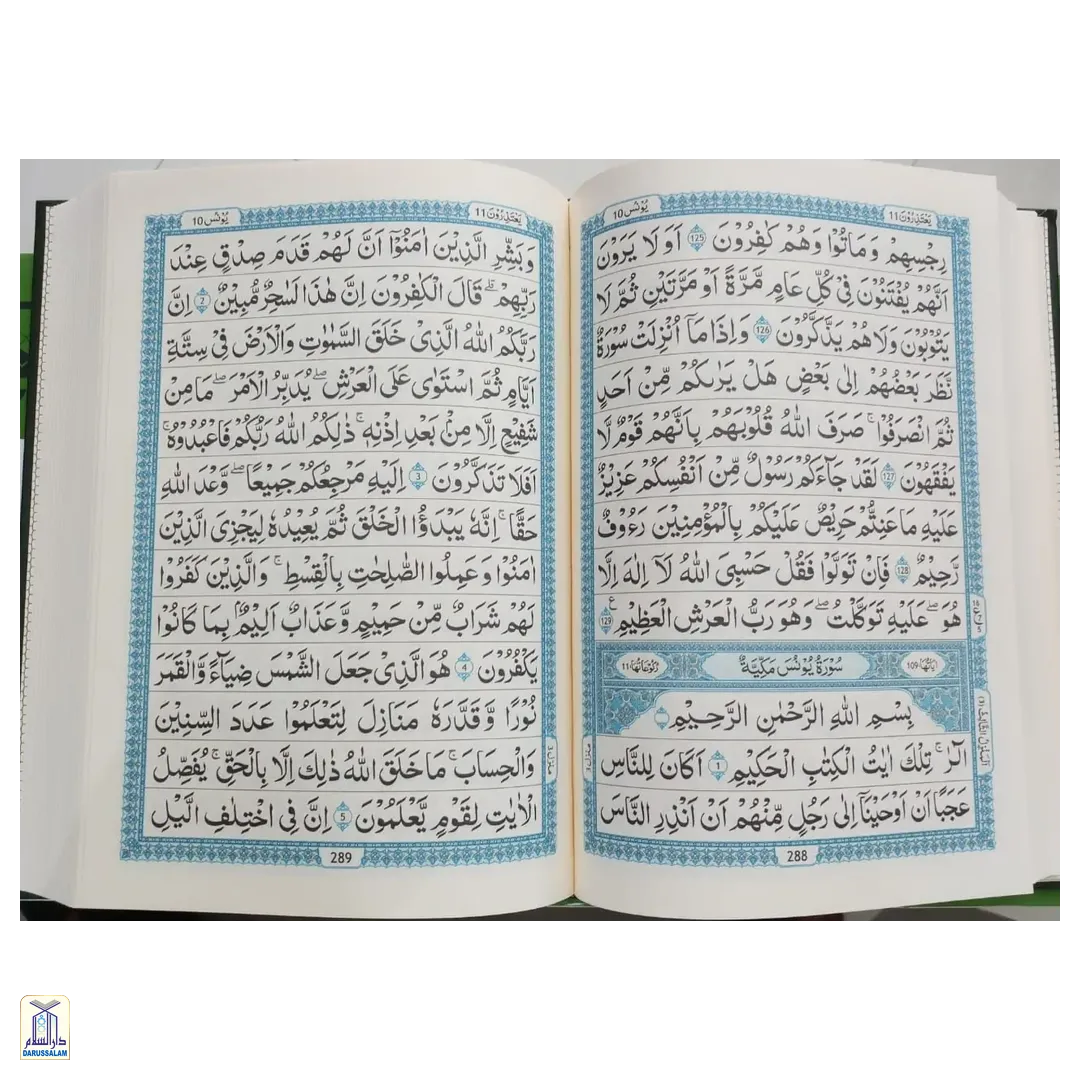 يَعْتَذِرُوْنَ 11
يُوْنُس 10
رِجْسِهِمْ وَمَاتُوْا وَهُمْ كٰفِرُوْنَ 125 اَوَلَا يَرَوْنَ
اَنَّهُمْ يُفْتَنُوْنَ فِيْ كُلِّ عَامٍ مَّرَّةً اَوْ مَرَّتَيْنِ ثُمَّ لَا
يَتُوْبُوْنَ وَلَاهُمْ يَذَّكَّرُوْنَ 126 وَاِذَا مَآ اُنْزِلَتْ سُوْرَةٌ
نَّظَرَ بَعْضُهُمْ اِلٰى بَعْضٍ هَلْ يَرٰىكُمْ مِّنْ اَحَدٍ
ثُمَّ انْصَرَفُوْا ۚ صَرَفَ اللّٰهُ قُلُوْبَهُمْ بِاَنَّهُمْ قَوْمٌ لَّا
يَفْقَهُوْنَ 127 لَقَدْ جَآءَكُمْ رَسُوْلٌ مِّنْ اَنْفُسِكُمْ عَزِيْزٌ
عَلَيْهِ مَا عَنِتُّمْ حَرِيْصٌ عَلَيْكُمْ بِالْمُؤْمِنِيْنَ رَءُوْفٌ
رَّحِيْمٌ 128 فَاِنْ تَوَلَّوْا فَقُلْ حَسْبِيَ اللّٰهُ لَآ اِلٰهَ اِلَّا
هُوَ ۖ عَلَيْهِ تَوَكَّلْتُ ۖ وَهُوَ رَبُّ الْعَرْشِ الْعَظِيْمِ 129 ع
اٰيَاتُهَا:109 سُوْرَةُ يُوْنُسَ مَكِّيَّةٌ رُكُوْعَاتُهَا:11
بِسْمِ اللّٰهِ الرَّحْمٰنِ الرَّحِيْمِ
الٓرٰ ۚ تِلْكَ اٰيٰتُ الْكِتٰبِ الْحَكِيْمِ 1 اَكَانَ لِلنَّاسِ
عَجَبًا اَنْ اَوْحَيْنَآ اِلٰى رَجُلٍ مِّنْهُمْ اَنْ اَنْذِرِ النَّاسَ
288
يَعْتَذِرُوْنَ 11
يُوْنُس 10
وَبَشِّرِ الَّذِيْنَ اٰمَنُوْٓا اَنَّ لَهُمْ قَدَمَ صِدْقٍ عِنْدَ
رَبِّهِمْ ۗ قَالَ الْكٰفِرُوْنَ اِنَّ هٰذَا لَسٰحِرٌ مُّبِيْنٌ 2 اِنَّ
رَبَّكُمُ اللّٰهُ الَّذِيْ خَلَقَ السَّمٰوٰتِ وَالْاَرْضَ فِيْ سِتَّةِ
اَيَّامٍ ثُمَّ اسْتَوٰى عَلَى الْعَرْشِ ۖ يُدَبِّرُ الْاَمْرَ ۖ مَا مِنْ
شَفِيْعٍ اِلَّا مِنْۢ بَعْدِ اِذْنِهٖ ۚ ذٰلِكُمُ اللّٰهُ رَبُّكُمْ فَاعْبُدُوْهُ ۚ
اَفَلَا تَذَكَّرُوْنَ 3 اِلَيْهِ مَرْجِعُكُمْ جَمِيْعًا ۖ وَّعْدَ اللّٰهِ
حَقًّا ۚ اِنَّهٗ يَبْدَؤُا الْخَلْقَ ثُمَّ يُعِيْدُهٗ لِيَجْزِيَ الَّذِيْنَ
اٰمَنُوْا وَعَمِلُوا الصّٰلِحٰتِ بِالْقِسْطِ ۚ وَالَّذِيْنَ كَفَرُوْا
لَهُمْ شَرَابٌ مِّنْ حَمِيْمٍ وَّعَذَابٌ اَلِيْمٌۢ بِمَا كَانُوْا
يَكْفُرُوْنَ 4 هُوَ الَّذِيْ جَعَلَ الشَّمْسَ ضِيَآءً وَّالْقَمَرَ
نُوْرًا وَّقَدَّرَهٗ مَنَازِلَ لِتَعْلَمُوْا عَدَدَ السِّنِيْنَ
وَالْحِسَابَ ۚ مَا خَلَقَ اللّٰهُ ذٰلِكَ اِلَّا بِالْحَقِّ ۚ يُفَصِّلُ
الْاٰيٰتِ لِقَوْمٍ يَّعْلَمُوْنَ 5 اِنَّ فِي اخْتِلٰفِ الَّيْلِ
289
دارالسلام
DARUSSALAM